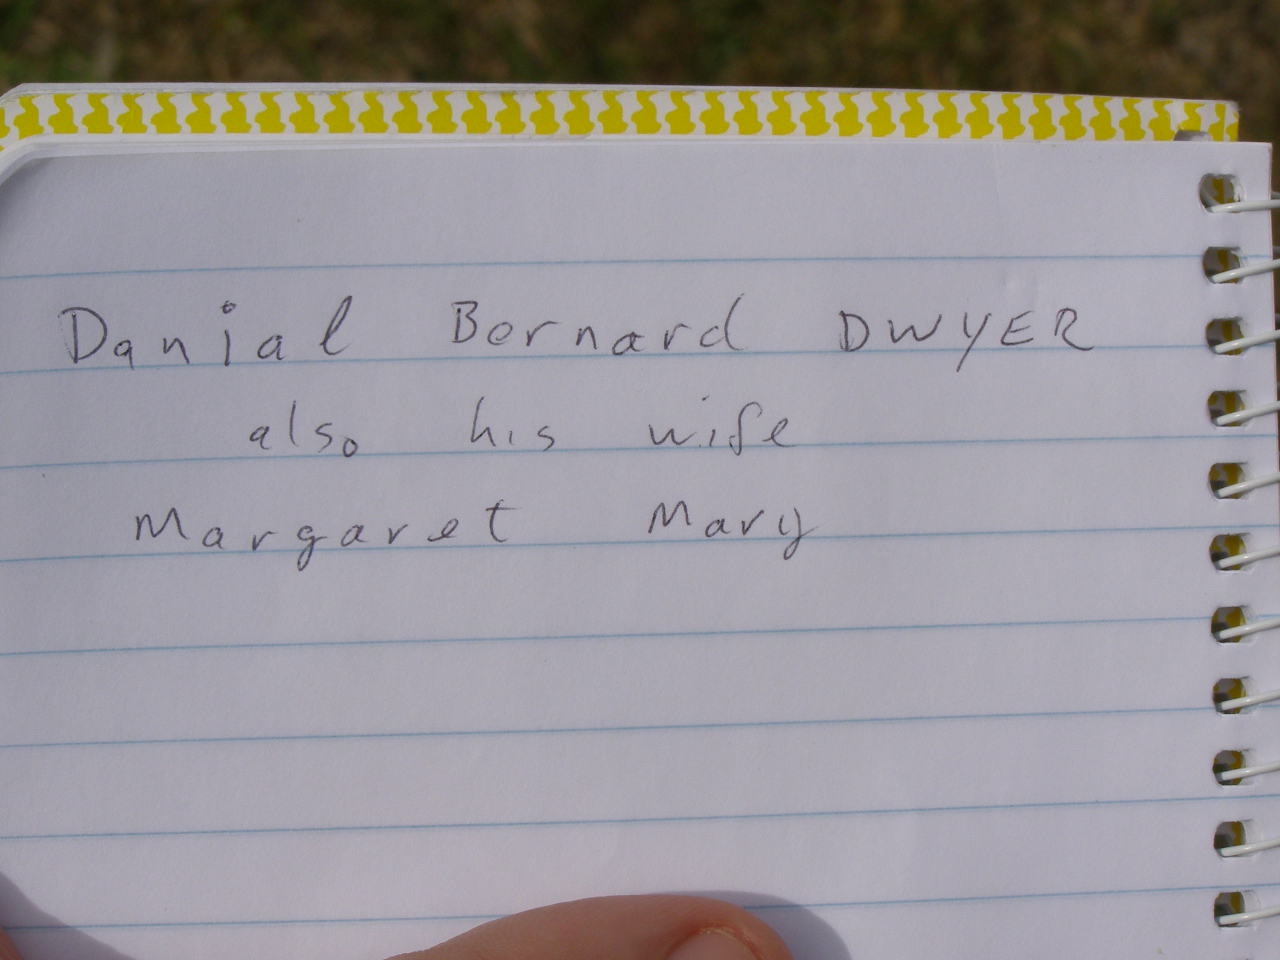 Danial Bernard DWYER
also his wife
Margaret Mary